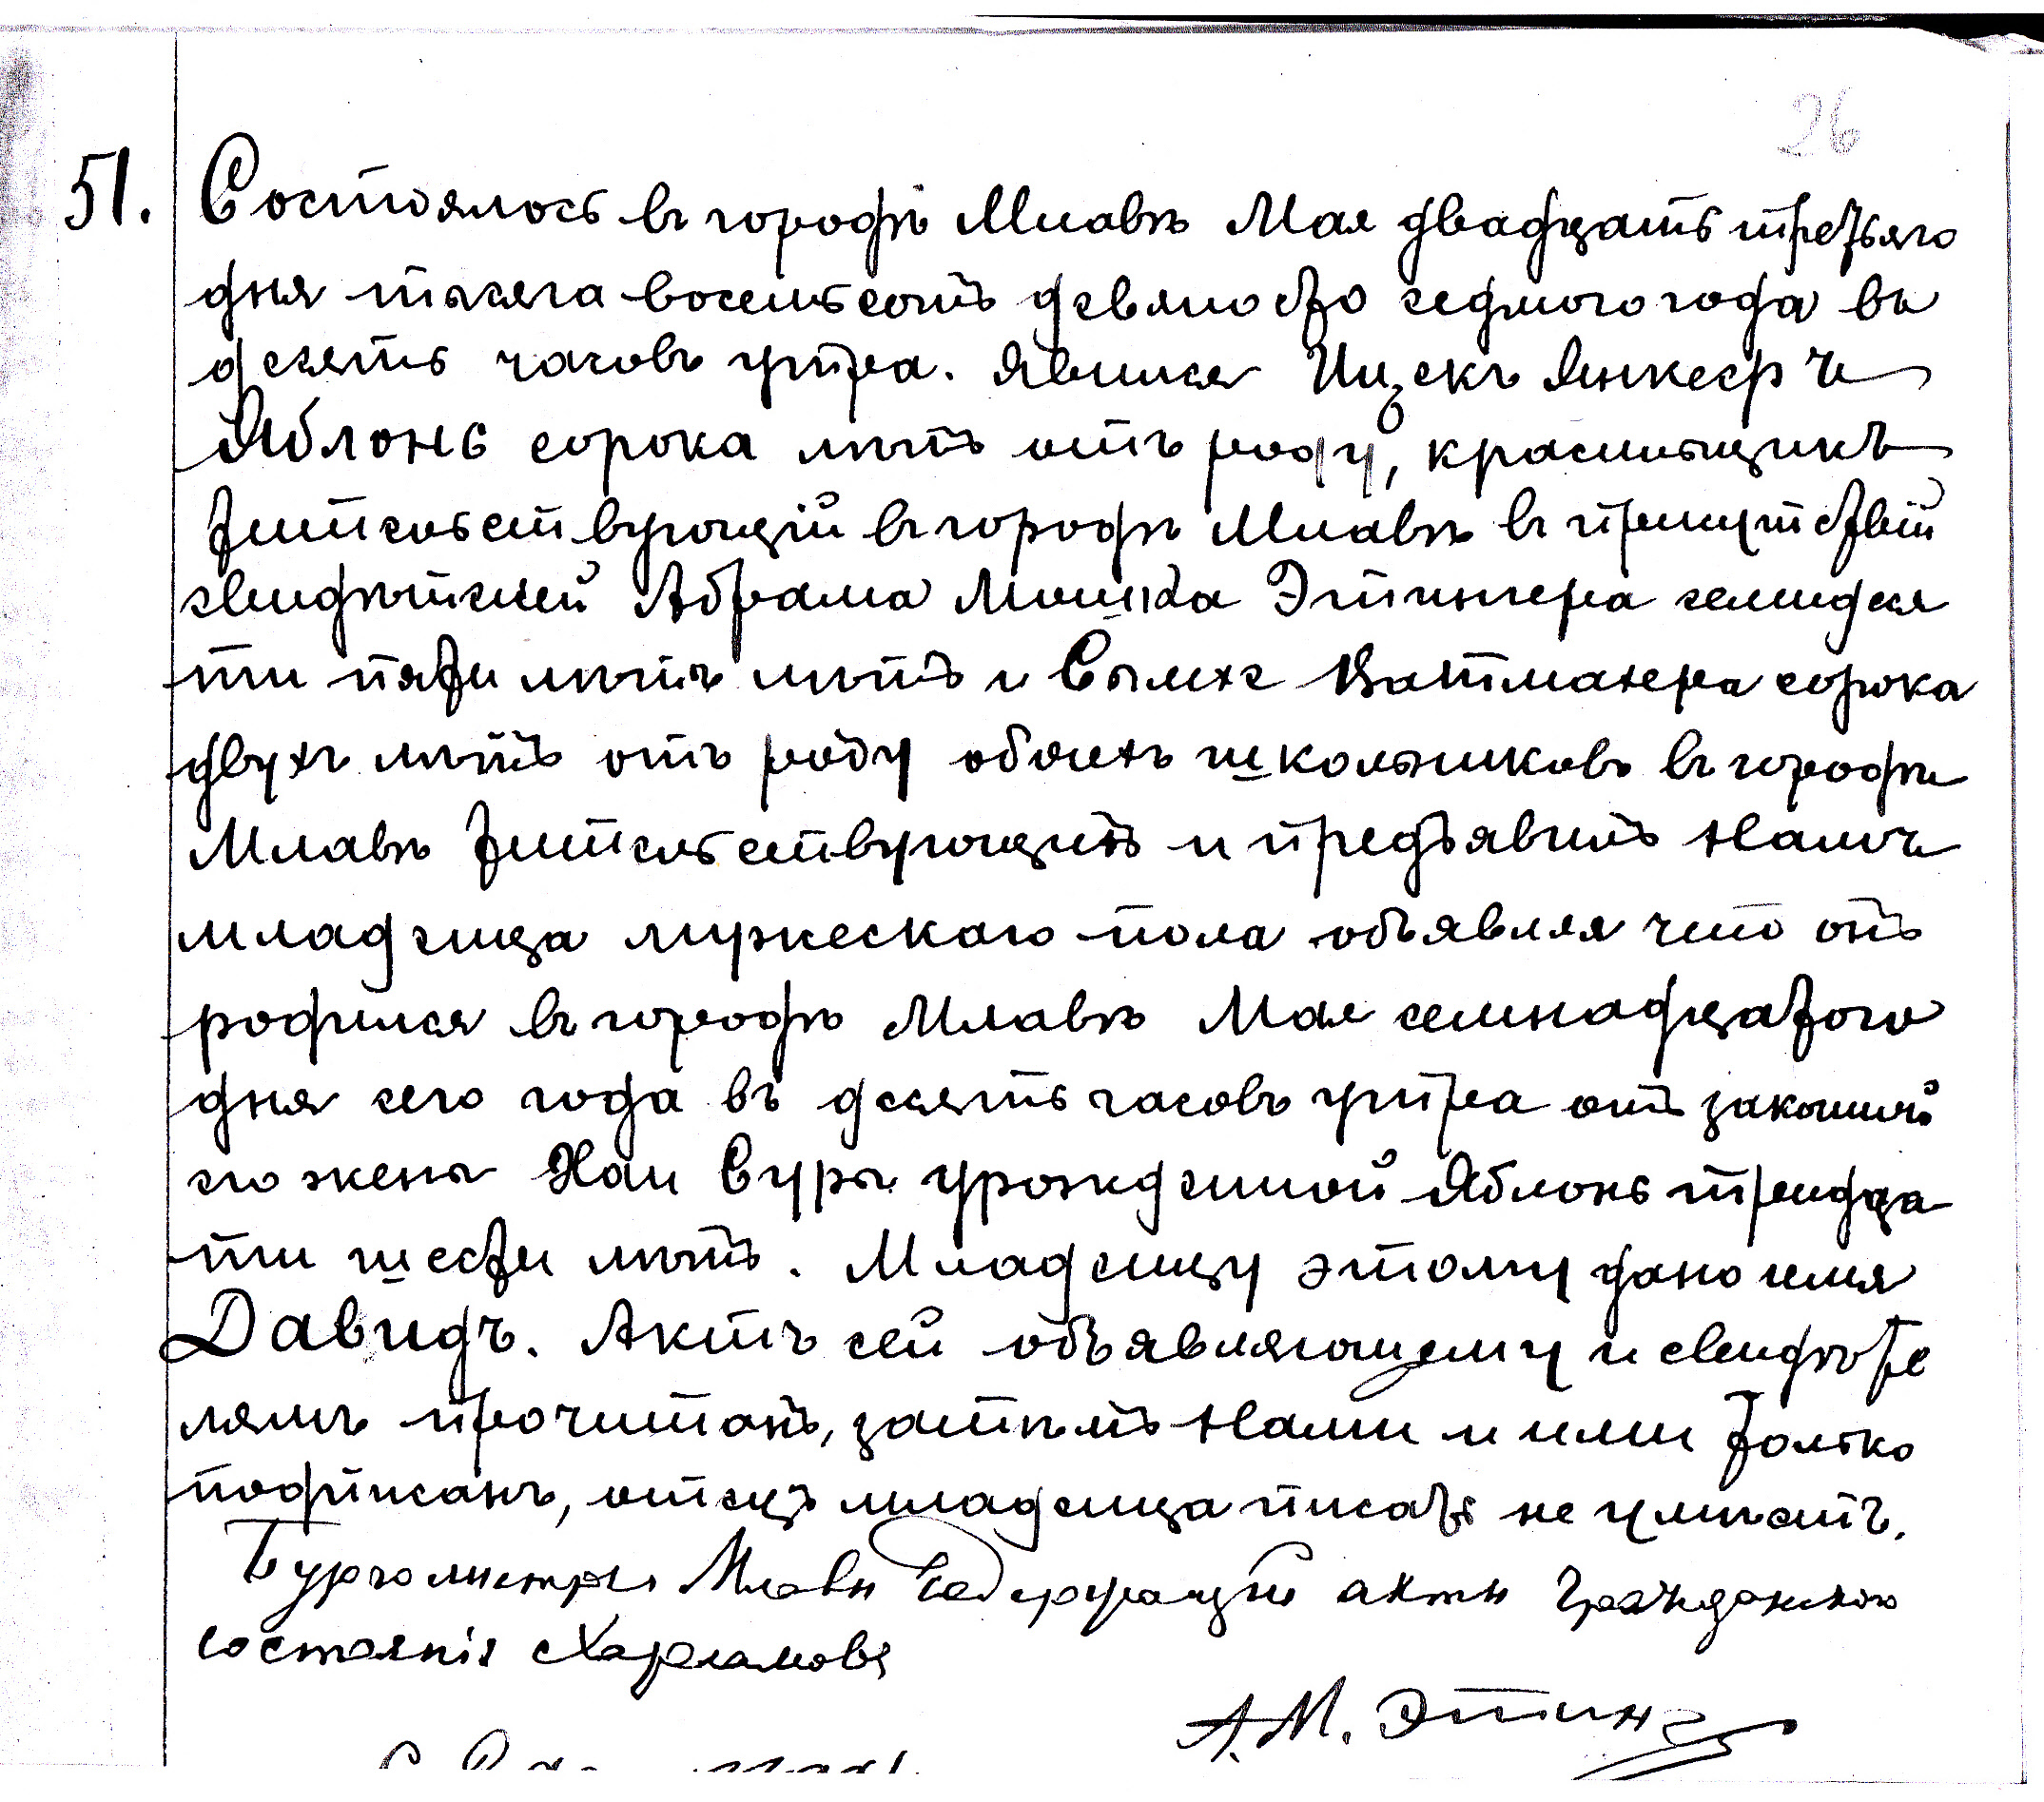 26
51. Состоялось въ городѣ Млавѣ Мая двадцать третьяго
дня тысяча восемьсотъ девяносто седмого года въ
десять часовъ утра. Явился Ицекъ Янкель
Яблонь сорока лѣтъ отъ роду, красильщикъ
жительствующій въ городѣ Млавѣ въ присутствіи
свидѣтелей Абрама Мошка Этингера семидеся
ти пяти лѣтъ лѣтъ и Сымхе Ватмахера сорока
двухъ лѣтъ отъ роду обоихъ школьниковъ въ городѣ
Млавѣ жительствующихъ и предъявилъ Намъ
младенца мужескаго пола объявляя что онъ
родился въ городѣ Млавѣ Мая семнадцатого
дня сего года въ десять часовъ утра отъ законной
его жены Хаи Суры урожденной Яблонь тридца
ти шести лѣтъ. Младенцу этому дано имя
Давидъ. Актъ сей объявляющему и свидѣте
лямъ прочитанъ, затѣмъ Нами и ими только
подписанъ, отецъ младенца писать не умѣетъ.
Бургомистръ Млавы Содержащій акты Гражданского
состоянія Харламовъ
А. М. Этинг